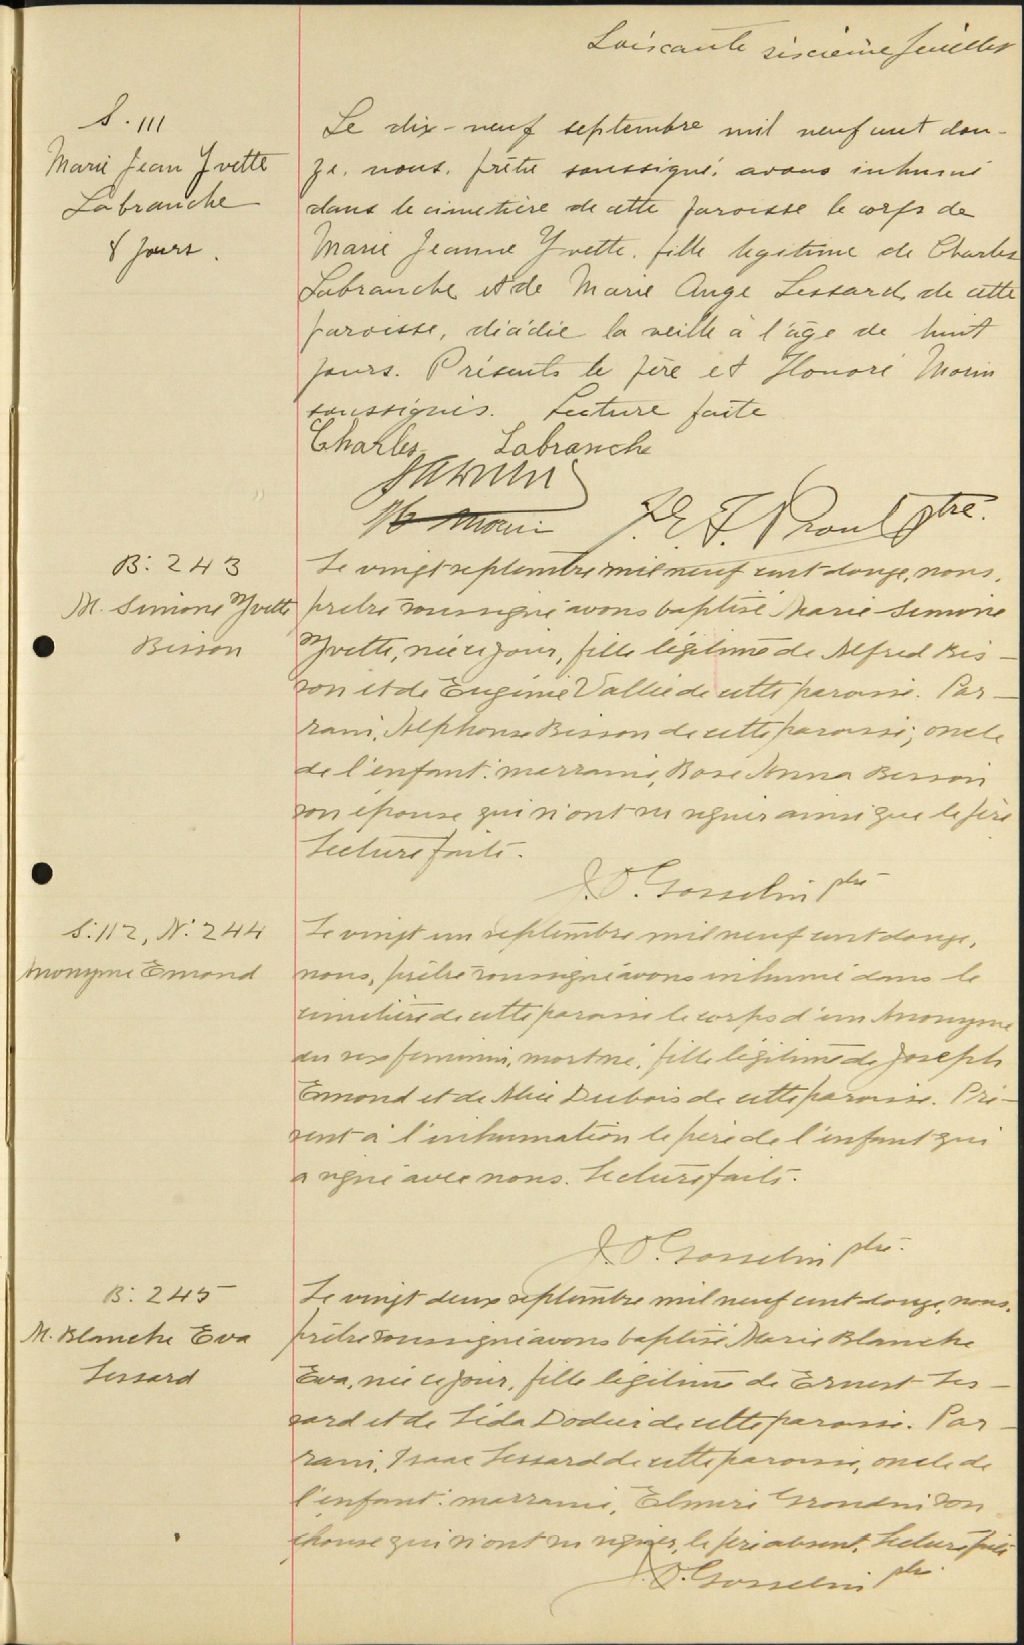 Soixante sixième feuillet
S. 111
Marie Jean Yvette
Labranche
8 jours.
Le dix-neuf septembre mil neuf cent dou-
ze, nous, prêtre soussigné, avons inhumé
dans le cimetière de cette paroisse le corps de
Marie Jeanne Yvette, fille légitime de Charles
Labranche et de Marie Ange Lessard, de cette
paroisse, décédée la veille à l'âge de huit
jours. Présents le père et Honoré Morin
soussignés. Lecture faite
Charles Labranche
H Morin
J. E. F. Proulx ptre.
B: 243
M. Simone Yvette
Bisson
Le vingt septembre mil neuf cent douze, nous,
prêtre soussigné avons baptisé Marie Simone
Yvette, née ce jour, fille légitime de Alfred Bis-
son et de Eugénie Vallée de cette paroisse. Par-
rain, Alphonse Bisson de cette paroisse, oncle
de l'enfant: marraine, Rose Anna Bisson
son épouse qui n'ont su signer ainsi que le père
Lecture faite.
J. O. Gosselin ptre
S: 112, N: 244
Anonyme Emond
Le vingt un septembre mil neuf cent douze,
nous, prêtre soussigné avons inhumé dans le
cimetière de cette paroisse le corps d'un Anonyme
du sexe féminin, mort né, fille légitime de Joseph
Emond et de Alice Dubois de cette paroisse. Pré-
sent à l'inhumation le père de l'enfant qui
a signé avec nous. Lecture faite.
J. O. Gosselin ptre.
B: 245
M. Blanche Eva
Lessard
Le vingt deux septembre mil neuf cent douze, nous,
prêtre soussigné avons baptisé Marie Blanche
Eva, née ce jour, fille légitime de Ernest Les-
sard et de Léda Dodier de cette paroisse. Par-
rain, Isaac Lessard de cette paroisse, oncle de
l'enfant: marraine, Elmire Grondin son
épouse qui n'ont su signer, le père absent. Lecture faite
J. O. Gosselin ptre.